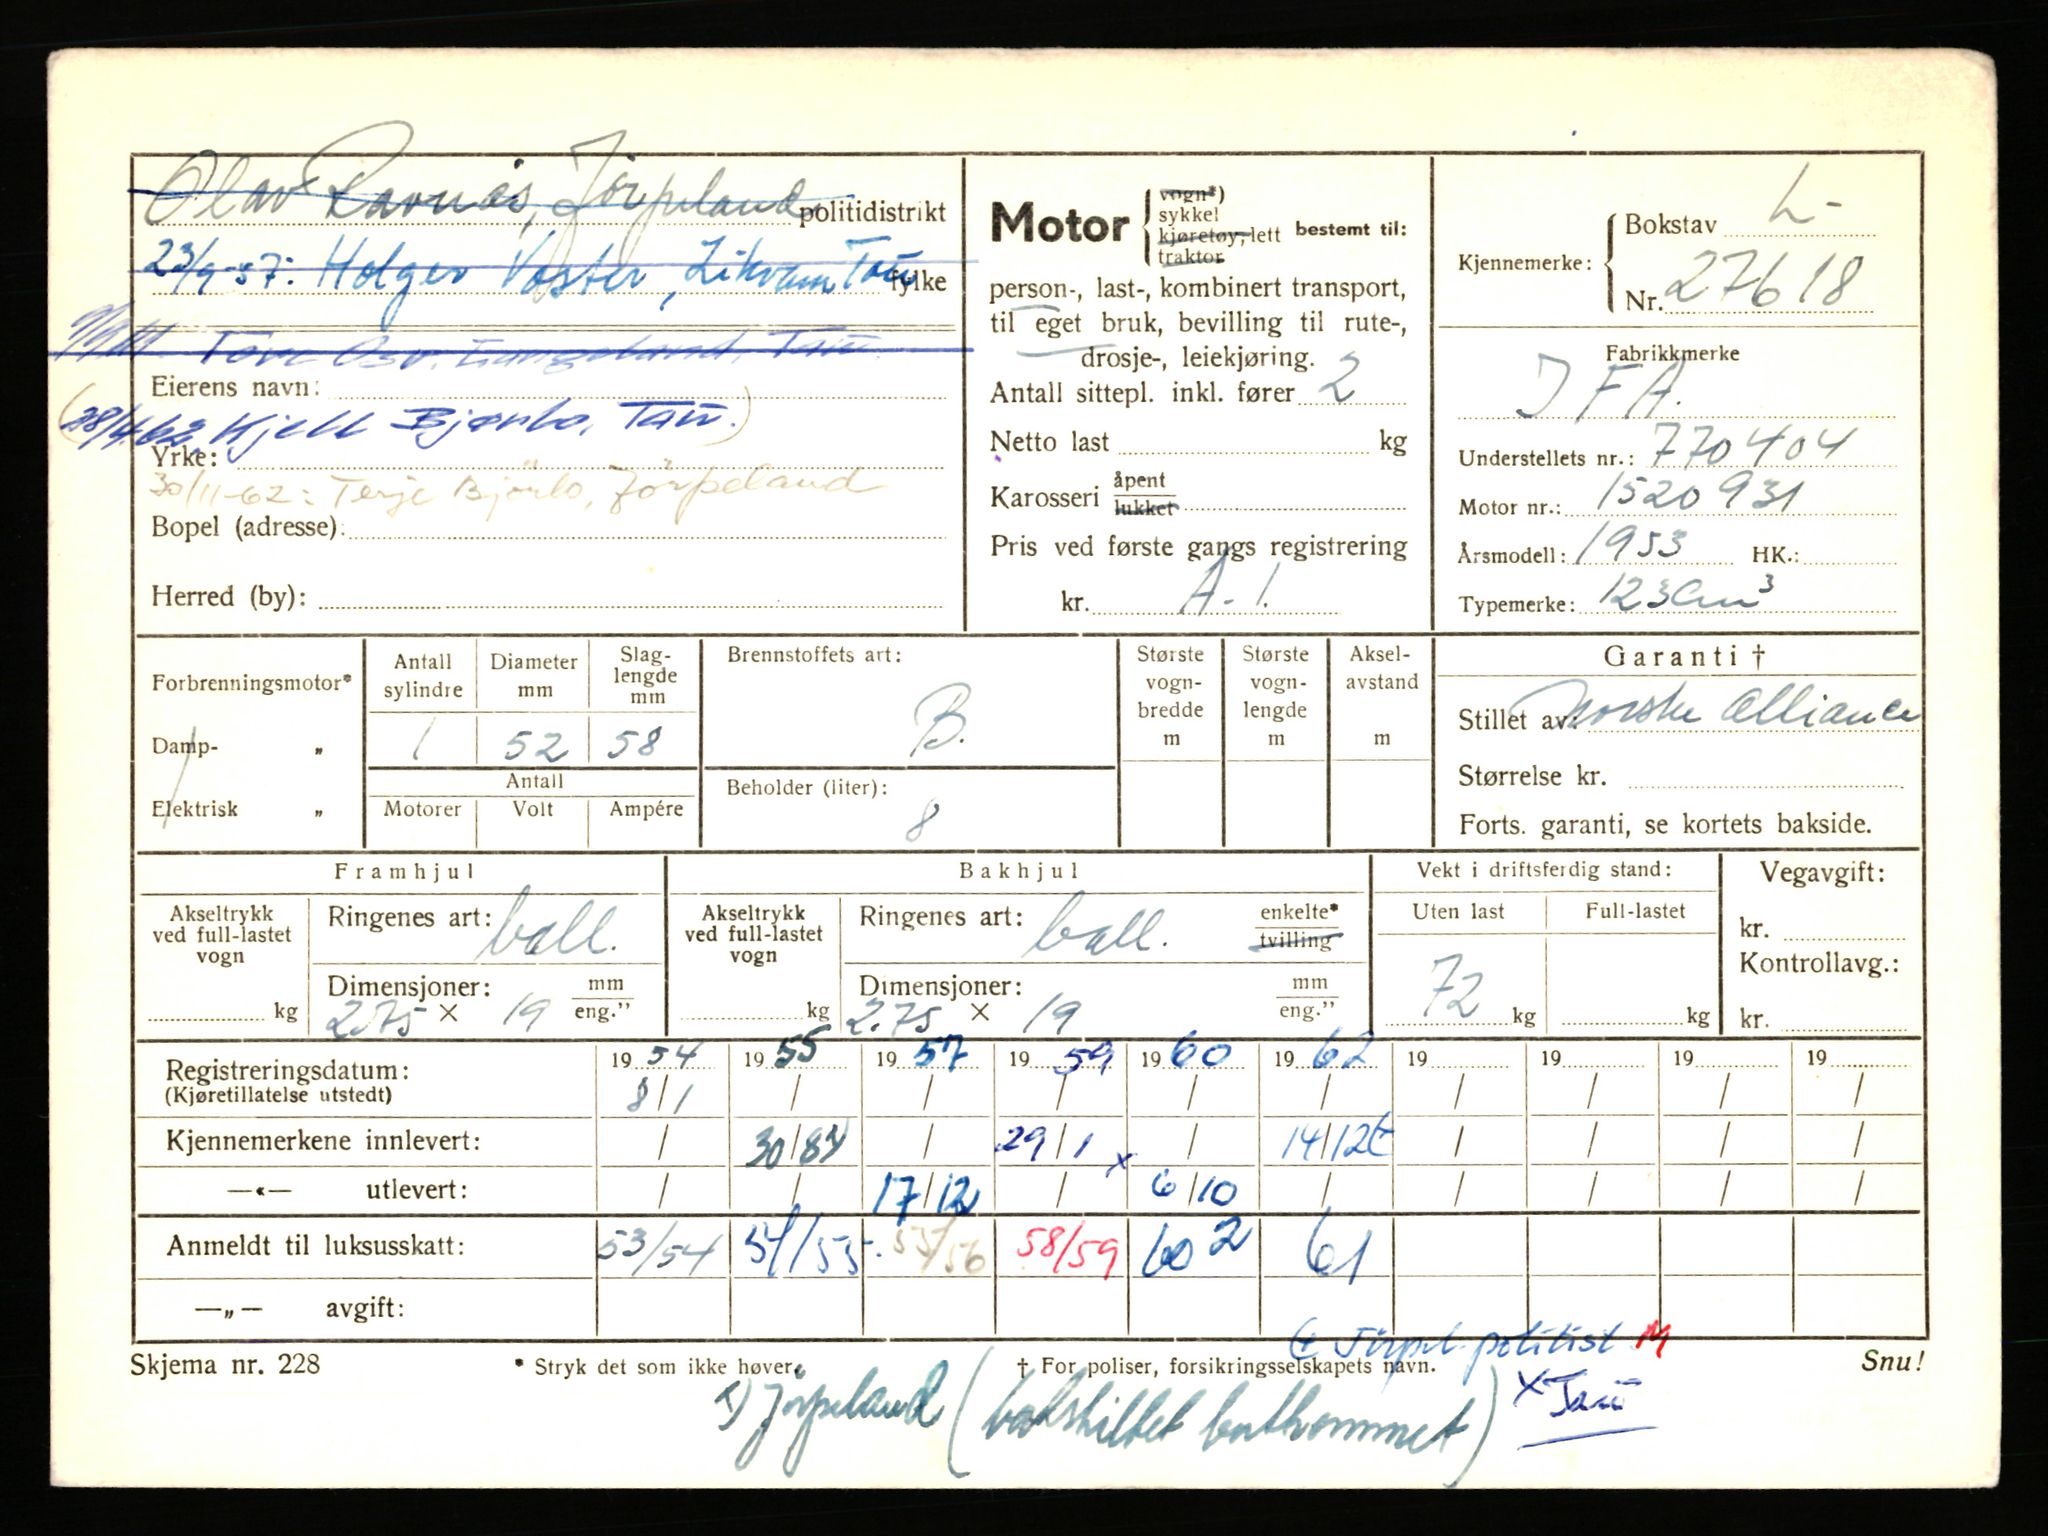 Olav Ravnås, Jørpeland politidistrikt
23/9-57: Holger Vaster, Tau fylke
Tau.
Eierens navn:
(28/4.62, Kjell Bjørlo, Tau.)
Yrke:
30/11-62: Terje Bjørlo, Jørpeland
Bopel (adresse):
Herred (by):
Motor { vogn*) sykkel kjøretøy, lett traktor bestemt til:
person-, last-, kombinert transport,
til eget bruk, bevilling til rute-,
drosje-, leiekjøring.
Antall sittepl. inkl. fører 2
Netto last kg
Karosseri åpent lukket
Pris ved første gangs registrering
kr. A-1.
Kjennemerke: { Bokstav L-
Nr. 27618
Fabrikkmerke
IFA.
Understellets nr.: 770404
Motor nr.: 1520931
Årsmodell: 1953 HK.:
Typemerke: 123 cm³
Forbrenningsmotor*
Damp- „
Elektrisk „
Antall sylindre Diameter mm Slag-lengde mm
1 52 58
Antall
Motorer Volt Ampére
Brennstoffets art:
B.
Beholder (liter):
8
Største vogn-bredde m Største vogn-lengde m Aksel-avstand m
Garanti †
Stillet av: Norske Alliance
Størrelse kr.
Forts. garanti, se kortets bakside.
Framhjul
Akseltrykk ved full-lastet vogn kg
Ringenes art: ball.
Dimensjoner: mm eng.”
2.75 × 19
Bakhjul
Akseltrykk ved full-lastet vogn kg
Ringenes art: ball. enkelte* tvilling
Dimensjoner: mm eng.”
2.75 × 19
Vekt i driftsferdig stand:
Uten last Full-lastet
72 kg kg
Vegavgift:
kr.
Kontrollavg.:
kr.
Registreringsdatum: 1954 1955 1957 1959 1960 1962 19 19 19 19
(Kjøretillatelse utstedt) 8/1 / / / / / / / / /
Kjennemerkene innlevert: / 30/8 / 29/1 x / 14/12 / / / /
—«— utlevert: / / 17/12 / 6/10 / / / / /
Anmeldt til luksusskatt: 53/54 54/55. 55/56 58/59 60 2 61
—„— avgift:
Jørpel. politist M
Skjema nr. 228 * Stryk det som ikke høver. † For poliser, forsikringsselskapets navn. Snu!
x) Jørpeland (bakskiltet bortkommet) x Tau